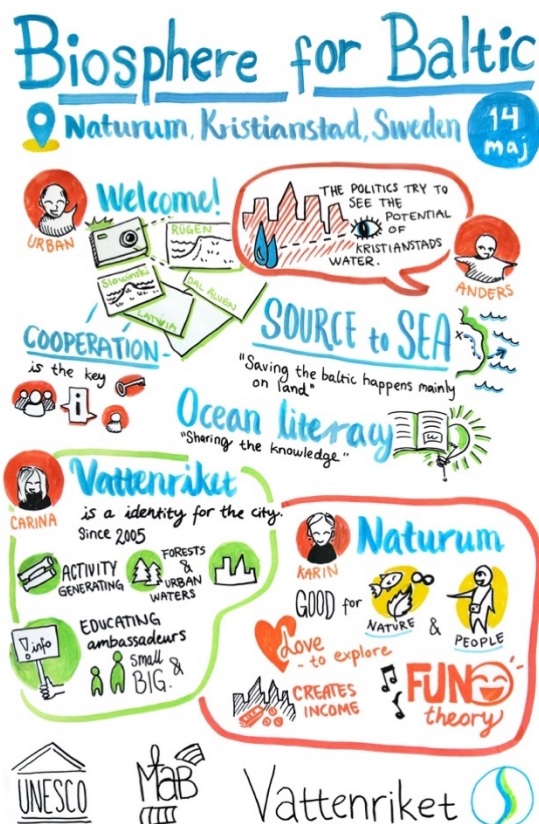 Biosphere for Baltic
Naturum, Kristianstad, Sweden
14
maj
Welcome!
URBAN
RÜGEN
Slowinski
DAL ÄLVEN
LATVIA
THE POLITICS TRY TO
SEE THE
POTENTIAL
OF
KRISTIANSTADS
WATER.
ANDERS
COOPERATION-
is the key
i
SOURCE to SEA
"Saving the baltic happens mainly
on land"
X
Ocean literacy
"Sharing the knowledge"
CARINA
Vattenriket
is a identity for the city.
Since 2005
ACTIVITY
GENERATING
FORESTS
&
URBAN
WATERS
info
EDUCATING
ambassadeurs
small &
BIG.
KARIN
Naturum
GOOD for
NATURE
&
PEOPLE
Love
- to explore
CREATES
INCOME
FUN
theory
UNESCO
MaB
Vattenriket